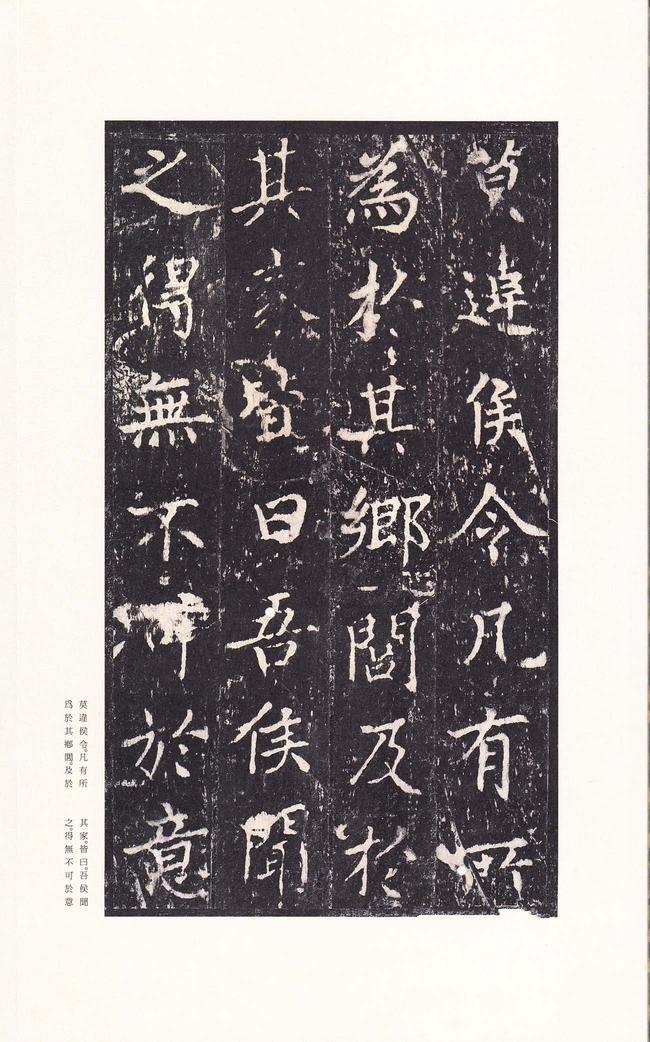 莫違侯令凡有所
為扵其鄉閭及扵
其家皆曰吾侯聞
之得無不可於意
莫違侯令。凡有所
爲於其鄉閭。及於
其家。皆曰。吾侯聞
之。得無不可於意